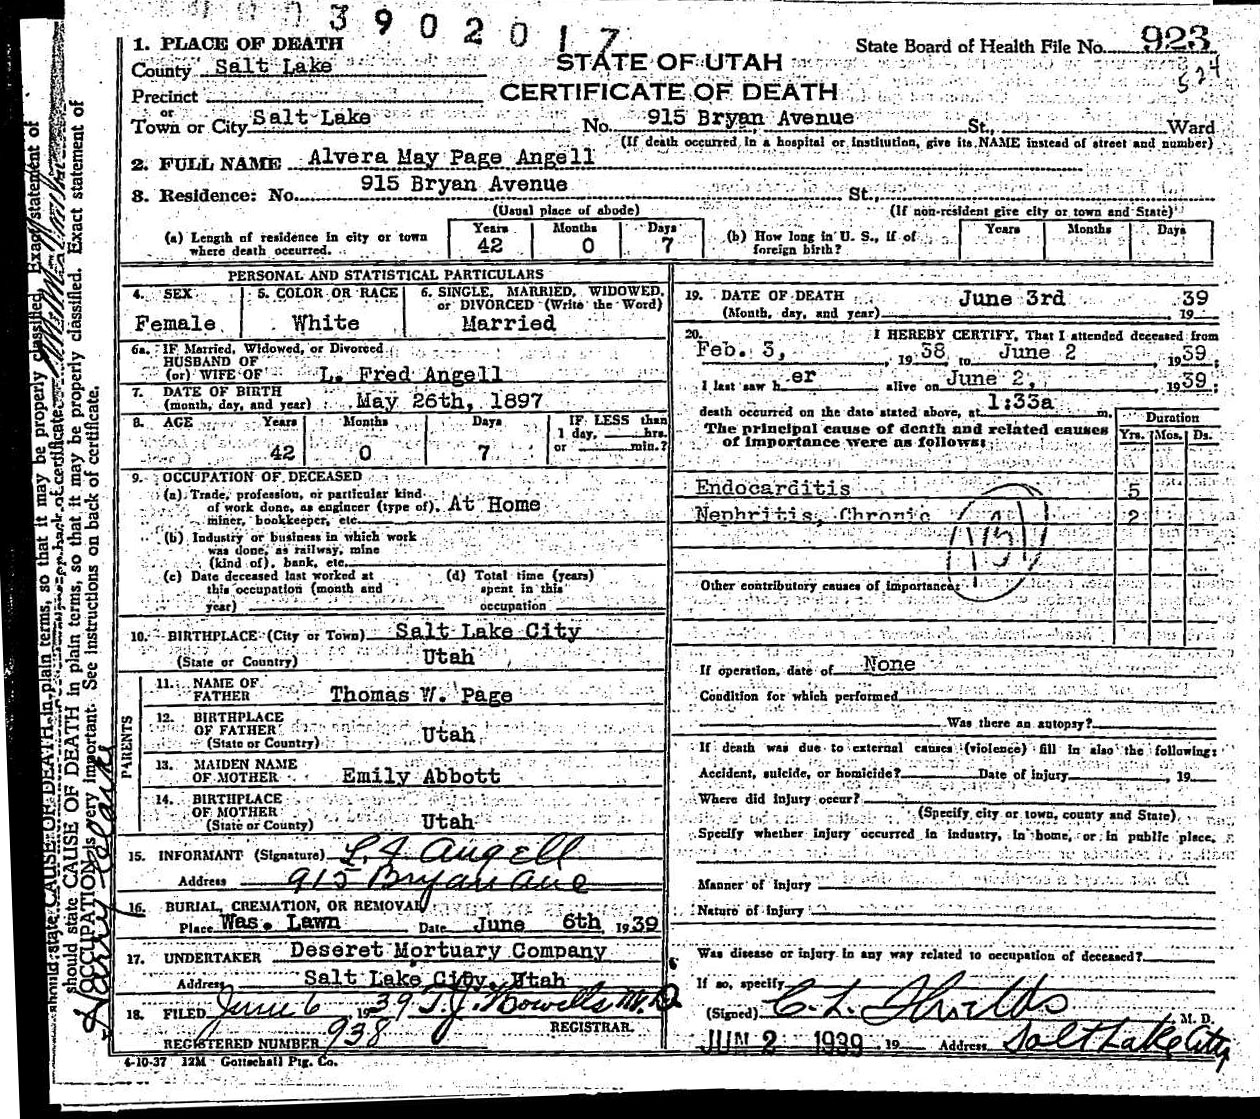 3902017
1. PLACE OF DEATH
State Board of Health File No. 923
524
County Salt Lake
STATE OF UTAH
Precinct
CERTIFICATE OF DEATH
or
Town or City Salt Lake No. 915 Bryan Avenue St., Ward
(If death occurred in a hospital or institution, give its NAME instead of street and number)
2. FULL NAME Alvera May Page Angell
3. Residence: No. 915 Bryan Avenue St.,
(Usual place of abode) (If non-resident give city or town and State)
(a) Length of residence in city or town where death occurred. Years 42 Months 0 Days 7 (b) How long in U. S., if of foreign birth? Years Months Days
PERSONAL AND STATISTICAL PARTICULARS
4. SEX 5. COLOR OR RACE 6. SINGLE, MARRIED, WIDOWED,
or DIVORCED (Write the Word)
Female White Married
6a. IF Married, Widowed, or Divorced
HUSBAND OF
(or) WIFE OF L. Fred Angell
7. DATE OF BIRTH
(month, day, and year) May 26th, 1897
8. AGE Years Months Days IF LESS than
1 day, hrs.
or min.?
42 0 7
9. OCCUPATION OF DECEASED
(a) Trade, profession, or particular kind
of work done, as engineer (type of), At Home
miner, bookkeeper, etc.
(b) Industry or business in which work
was done, as railway, mine
(kind of), bank, etc.
(c) Date deceased last worked at (d) Total time (years)
this occupation (month and spent in this
year) occupation
10. BIRTHPLACE (City or Town) Salt Lake City
(State or Country) Utah
PARENTS
11. NAME OF
FATHER Thomas W. Page
12. BIRTHPLACE
OF FATHER Utah
(State or Country)
13. MAIDEN NAME
OF MOTHER Emily Abbott
14. BIRTHPLACE
OF MOTHER
(State or County) Utah
15. INFORMANT (Signature) L. F. Angell
Address 915 Bryan Ave
16. BURIAL, CREMATION, OR REMOVAL
Place Was. Lawn Date June 6th, 1939
17. UNDERTAKER Deseret Mortuary Company
Address Salt Lake City, Utah
18. FILED June 6 1939 T. J. Howells M.D.
REGISTRAR.
REGISTERED NUMBER 938
4-10-37 12M Gottschall Ptg. Co.
19. DATE OF DEATH June 3rd, 1939
(Month, day, and year)
20. I HEREBY CERTIFY, That I attended deceased from
Feb. 3, 1938, to June 2, 1939.
I last saw her alive on June 2, 1939.
death occurred on the date stated above, at 1:33a m.
The principal cause of death and related causes
of importance were as follows:
Duration
Yrs. Mos. Ds.
Endocarditis 5
Nephritis, Chronic 2
Other contributory causes of importance:
If operation, date of None
Condition for which performed
Was there an autopsy?
If death was due to external causes (violence) fill in also the following:
Accident, suicide, or homicide? Date of injury , 19
Where did injury occur?
(Specify city or town, county and State)
Specify whether injury occurred in industry, in home, or in public place.
Manner of Injury
Nature of injury
Was disease or injury in any way related to occupation of deceased?
If so, specify
(Signed) C. L. Shields M. D.
JUN 2 1939 19 Address Salt Lake City
should state CAUSE OF DEATH in plain terms, so that it may be properly classified. Exact statement of
OCCUPATION is very important. See instructions on back of certificate.